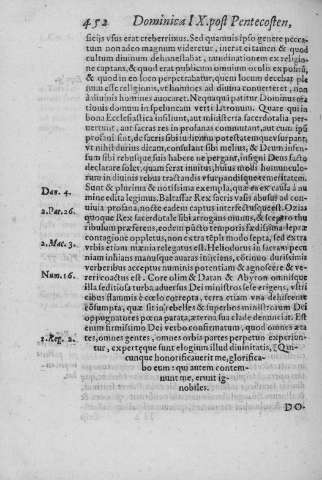 452 Dominica IX. post Pentecosten,
ficijs vsus erat creberrimus. Sed quamuis ipso genere pecca-
tum non adeo magnum videretur, inerat ei tamen & quod
cultum diuinum dehonestabat, nundinationem ex religio-
ne captans, & quod erat publicum omnium oculis expositū,
& quod in eo loco perpetrabatur, quem locum decebat ple-
num esse religionis, vt homines ad diuina conuerteret, non
à diuinis homines auocaret. Nequaquā patitur Dominus ora
tionis domum in speluncam verti latronum. Quare qui in
bona Ecclesiastica insiliunt, aut ministeria sacerdotalia per-
uertunt, aut sacras res in profanas commutant, aut cum ipsi
profani sint, de sacris sibi iudicium potestatemque vsurpant,
vt nihil durius dicam, consulant sibi melius, & Deum infen-
sum sibi rebusque suis habere ne pergant, insigni Deus facto
declarare solet, quam ferat inuitus, huiusmodi homunculo-
rum in diuinis rebus tractandis vsurpandisque temeritatem.
Sunt & plurima & notissima exempla, quæ ex ex caula à nu
Dan. 4. mine edita legimus. Baltassar Rex sacris vasis abusus ad con-
uiuia profana, nocte eadem captus interfectusque est. Ozias
2. Par. 26. quoque Rex sacerdotale sibi arrogans munus, & sceptro thu
ribulum præferens, eodem pūcto temporis fœdissima lepræ
contagione oppletus, non extra tēplū modo sepi, sed extra
2. Mac. 3. vrbis etiam mœnia relegatus est. Heliodorus in sacram pecu
niam inhians manusque auaras iniiciens, cōtinuo durissimis
verberibus acceptus numinis potentiam & agnoscere & ve-
Num. 16. reri coactus est. Core olim & Datan & Abyron omnisque
illa seditiosa turba aduersus Dei ministros sese erigens, vsti
cibus flammis è cœlo correpta, terra etiam vna dehiscente
cōsumpta, quæ sit in rebelles & superbos ministrorum Dei
oppugnatores pœna parata, æterna sua clade denunciat. Est
enim firmissimo Dei verbo confirmatum, quod omnes æta
2. Reg. 2. tes, omnes gentes, omnes orbis partes perpetuo experiun-
tur, experteque sunt elogium illud diuinitatis, Qui-
cunque honorificauerit me, glorifica-
bo eum: qui autem contem-
nunt me, erunt ig-
nobiles.
DO-